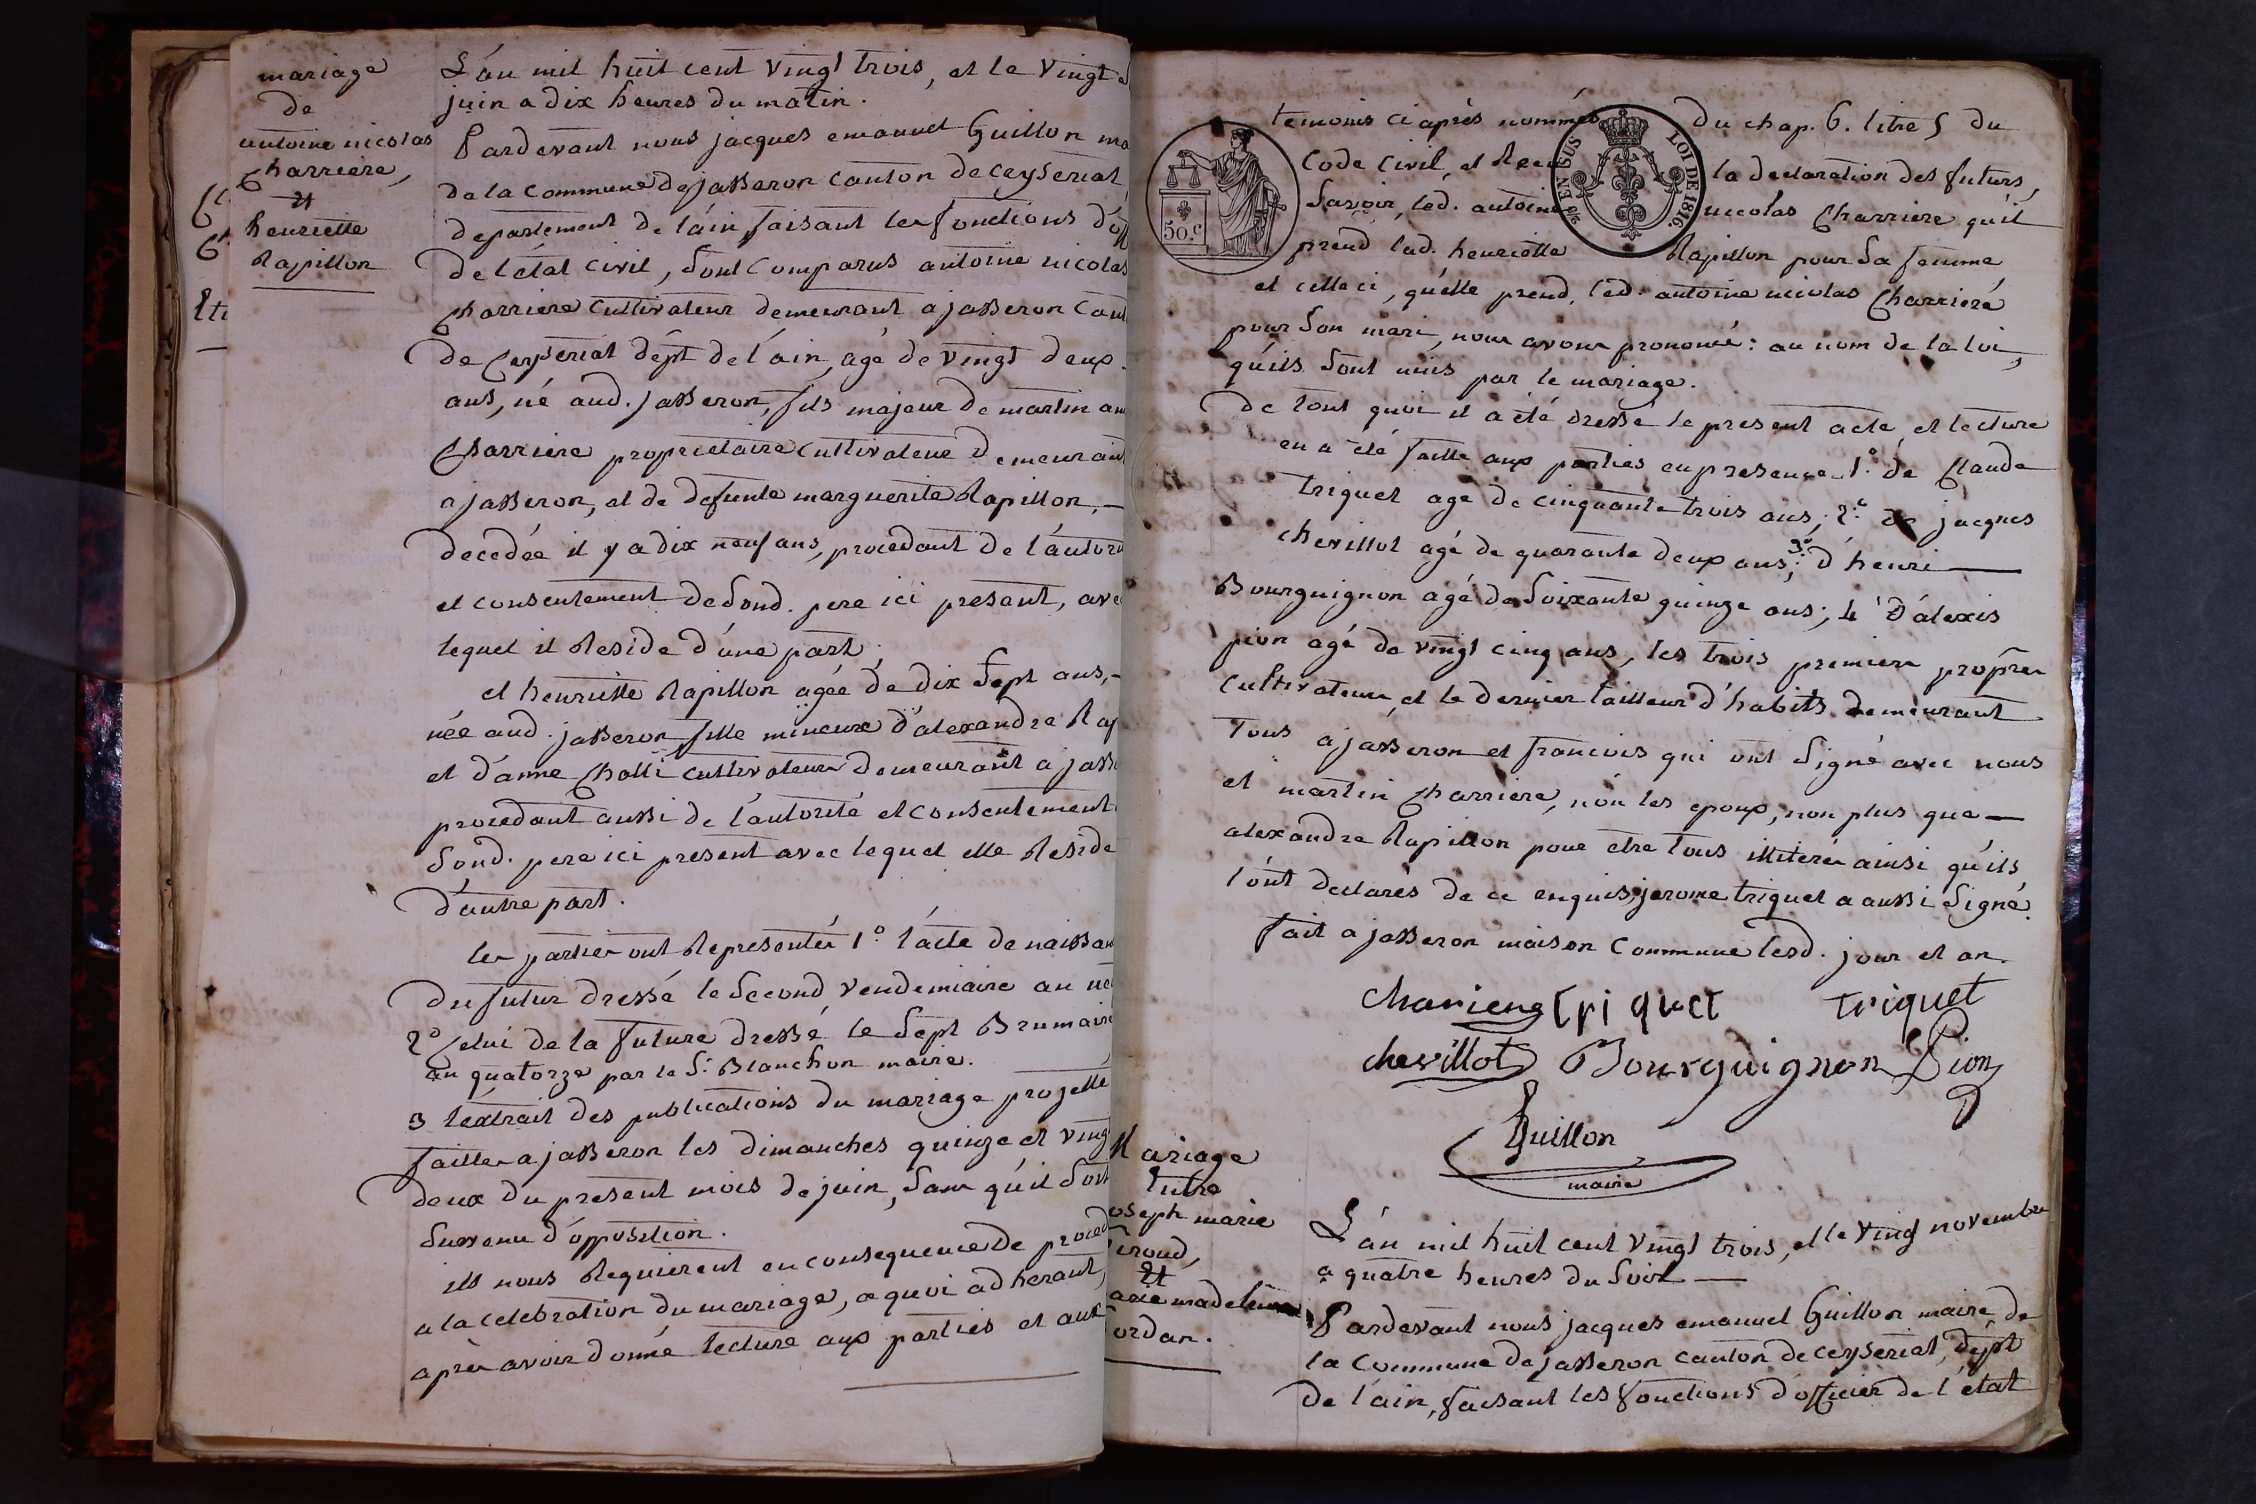 mariage
de
antoine nicolas
Charriere,
et
henriette
Rapillon
L'an mil huit cent vingt trois, et le vingt
juin a dix heures du matin.
Pardevant nous jacques emanuel Guillon
de la Commune de jasseron canton de Ceyseriat
departement de l'ain faisant les fonctions
de l'état civil, sont Comparus antoine nicolas
Charriere Cultivateur demeurant a jasseron
de Ceyseriat dépt de l'ain, agé de vingt deux
ans, né aud. jasseron, fils majeur de martin
Charriere proprietaire Cultivateur demeurant
a jasseron, et de defunte marguerite Rapillon,
decedée il y a dix neuf ans, procedant de
et consentement de sond. pere ici présent,
lequel il Reside d'une part.
et henriette Rapillon agée de dix sept ans,
née aud. jasseron fille mineure d'alexandre
et d'anne Cholti cultivateurs demeurant a
procedant aussi de l'autorité et consentement
sond. pere ici present avec lequel elle Reside
d'autre part.
les parties ont Representés 1° l'acte de
du futur dressé le second vendemiaire an
2° Celui de la future dressé le sept Brumaire
an quatorze par le Sr Blanchon maire.
3 l'extrait des publications du mariage projetté
faittes a jasseron les dimanches quinze et
deux du present mois de juin, sans qu'il soit
survenu d'opposition.
ils nous Requierent en consequence de
a la celebration du mariage, a quoi adherant,
après avoir donné lecture aux parties et aux
temoins ci après nommés du chap. 6. titre 5 du
Code Civil, et la declaration des futurs,
Savoir, led. antoine nicolas Charriere qu'il
prend lad. henriette Rapillon pour sa femme
et celle ci, qu'elle prend led. antoine nicolas Charriere
pour son mari, nous avons prononcé: au nom de la loi,
qu'ils sont unis par le mariage.
50.c
EN SUS
LOI DE 1816.
de tout quoi il a été dressé le present acte, et lecture
en a été faitte aux parties en presence 1° de Claude
triquet agé de cinquante trois ans; 2° de jacques
chevillot agé de quarante deux ans; 3° d'henri
Bourguignon agé de soixante quinze ans; 4° d'alexis
pion agé de vingt cinq ans, les trois premiers propres
cultivateurs, et le dernier tailleur d'habits demeurant
tous a jasseron et francois qui ont signé avec nous
et martin Charriere, non les epoux, non plus que
alexandre Rapillon pour etre tous illiterés ainsi qu'ils
l'ont declarés de ce enquis; jerome triquet a aussi signé.
fait a jasseron maison Commune lesd. jour et an.
triquet triquet
chevillot Bourguignon Pion
Guillon
maire
Mariage
Entre
oseph marie
et
madeleine
L'an mil huit cent vingt trois, et le vingt novembre
a quatre heures du soir
Pardevant nous jacques emanuel Guillon maire de
la Commune de jasseron canton de ceyseriat, dépt
de l'ain, faisant les fonctions d'officier de l'état